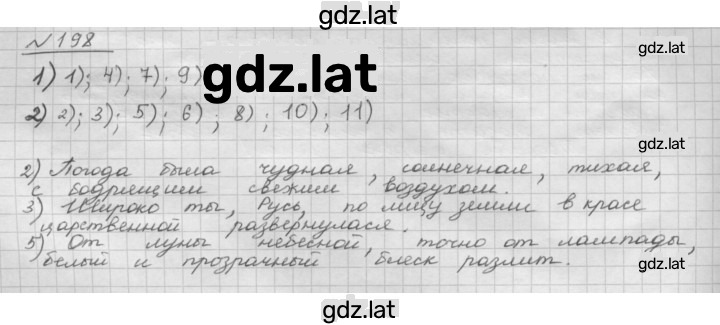 gdz.lat
№198
gdz.lat
1) 1); 4); 7); 9)
gdz.lat
2) 2); 3); 5); 6); 8); 10); 11)
2) Погода была чудная, солнечная, тихая,
с бодрящим свежим воздухом.
3) Широко ты, Русь, по лицу земли в красе
царственной развернулася.
5) От луны небесной, точно от лампады,
белый и прозрачный блеск разлит.
gdz.lat
gdz.lat